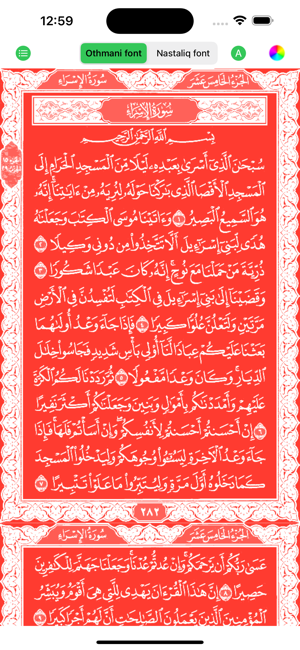 12:59
Othmani font
Nastaliq font
A
سُورَةُ الإِسْرَاء
الجُزْءُ الخَامِسَ عَشَرَ
سُورَةُ الإِسْرَاءِ
بِسْمِ اللَّهِ الرَّحْمَٰنِ الرَّحِيمِ
سُبْحَٰنَ ٱلَّذِىٓ أَسْرَىٰ بِعَبْدِهِۦ لَيْلًا مِّنَ ٱلْمَسْجِدِ ٱلْحَرَامِ إِلَى
ٱلْمَسْجِدِ ٱلْأَقْصَا ٱلَّذِى بَٰرَكْنَا حَوْلَهُۥ لِنُرِيَهُۥ مِنْ ءَايَٰتِنَآ إِنَّهُۥ
هُوَ ٱلسَّمِيعُ ٱلْبَصِيرُ ١ وَءَاتَيْنَا مُوسَى ٱلْكِتَٰبَ وَجَعَلْنَٰهُ
هُدًى لِّبَنِىٓ إِسْرَٰٓءِيلَ أَلَّا تَتَّخِذُوا۟ مِن دُونِى وَكِيلًا ٢
ذُرِّيَّةَ مَنْ حَمَلْنَا مَعَ نُوحٍ إِنَّهُۥ كَانَ عَبْدًا شَكُورًا ٣
وَقَضَيْنَآ إِلَىٰ بَنِىٓ إِسْرَٰٓءِيلَ فِى ٱلْكِتَٰبِ لَتُفْسِدُنَّ فِى ٱلْأَرْضِ
مَرَّتَيْنِ وَلَتَعْلُنَّ عُلُوًّا كَبِيرًا ٤ فَإِذَا جَآءَ وَعْدُ أُولَىٰهُمَا
بَعَثْنَا عَلَيْكُمْ عِبَادًا لَّنَآ أُو۟لِى بَأْسٍ شَدِيدٍ فَجَاسُوا۟ خِلَٰلَ
ٱلدِّيَارِ وَكَانَ وَعْدًا مَّفْعُولًا ٥ ثُمَّ رَدَدْنَا لَكُمُ ٱلْكَرَّةَ
عَلَيْهِمْ وَأَمْدَدْنَٰكُم بِأَمْوَٰلٍ وَبَنِينَ وَجَعَلْنَٰكُمْ أَكْثَرَ نَفِيرًا
٦ إِنْ أَحْسَنتُمْ أَحْسَنتُمْ لِأَنفُسِكُمْ وَإِنْ أَسَأْتُمْ فَلَهَا فَإِذَا
جَآءَ وَعْدُ ٱلْءَاخِرَةِ لِيَسُۥٓـُٔوا۟ وُجُوهَكُمْ وَلِيَدْخُلُوا۟ ٱلْمَسْجِدَ
كَمَا دَخَلُوهُ أَوَّلَ مَرَّةٍ وَلِيُتَبِّرُوا۟ مَا عَلَوْا۟ تَتْبِيرًا ٧
٢٨٢
سُورَةُ الإِسْرَاء
الجُزْءُ الخَامِسَ عَشَرَ
عَسَىٰ رَبُّكُمْ أَن يَرْحَمَكُمْ وَإِنْ عُدتُّمْ عُدْنَا وَجَعَلْنَا جَهَنَّمَ لِلْكَٰفِرِينَ
حَصِيرًا ٨ إِنَّ هَٰذَا ٱلْقُرْءَانَ يَهْدِى لِلَّتِى هِىَ أَقْوَمُ وَيُبَشِّرُ
ٱلْمُؤْمِنِينَ ٱلَّذِينَ يَعْمَلُونَ ٱلصَّٰلِحَٰتِ أَنَّ لَهُمْ أَجْرًا كَبِيرًا ٩